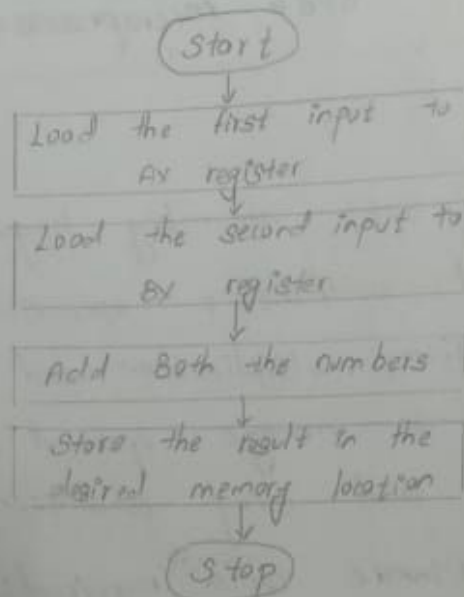 Start
Load the first input to
AX register
Load the second input to
BX register
Add Both the numbers
Store the result in the
desired memory location
Stop